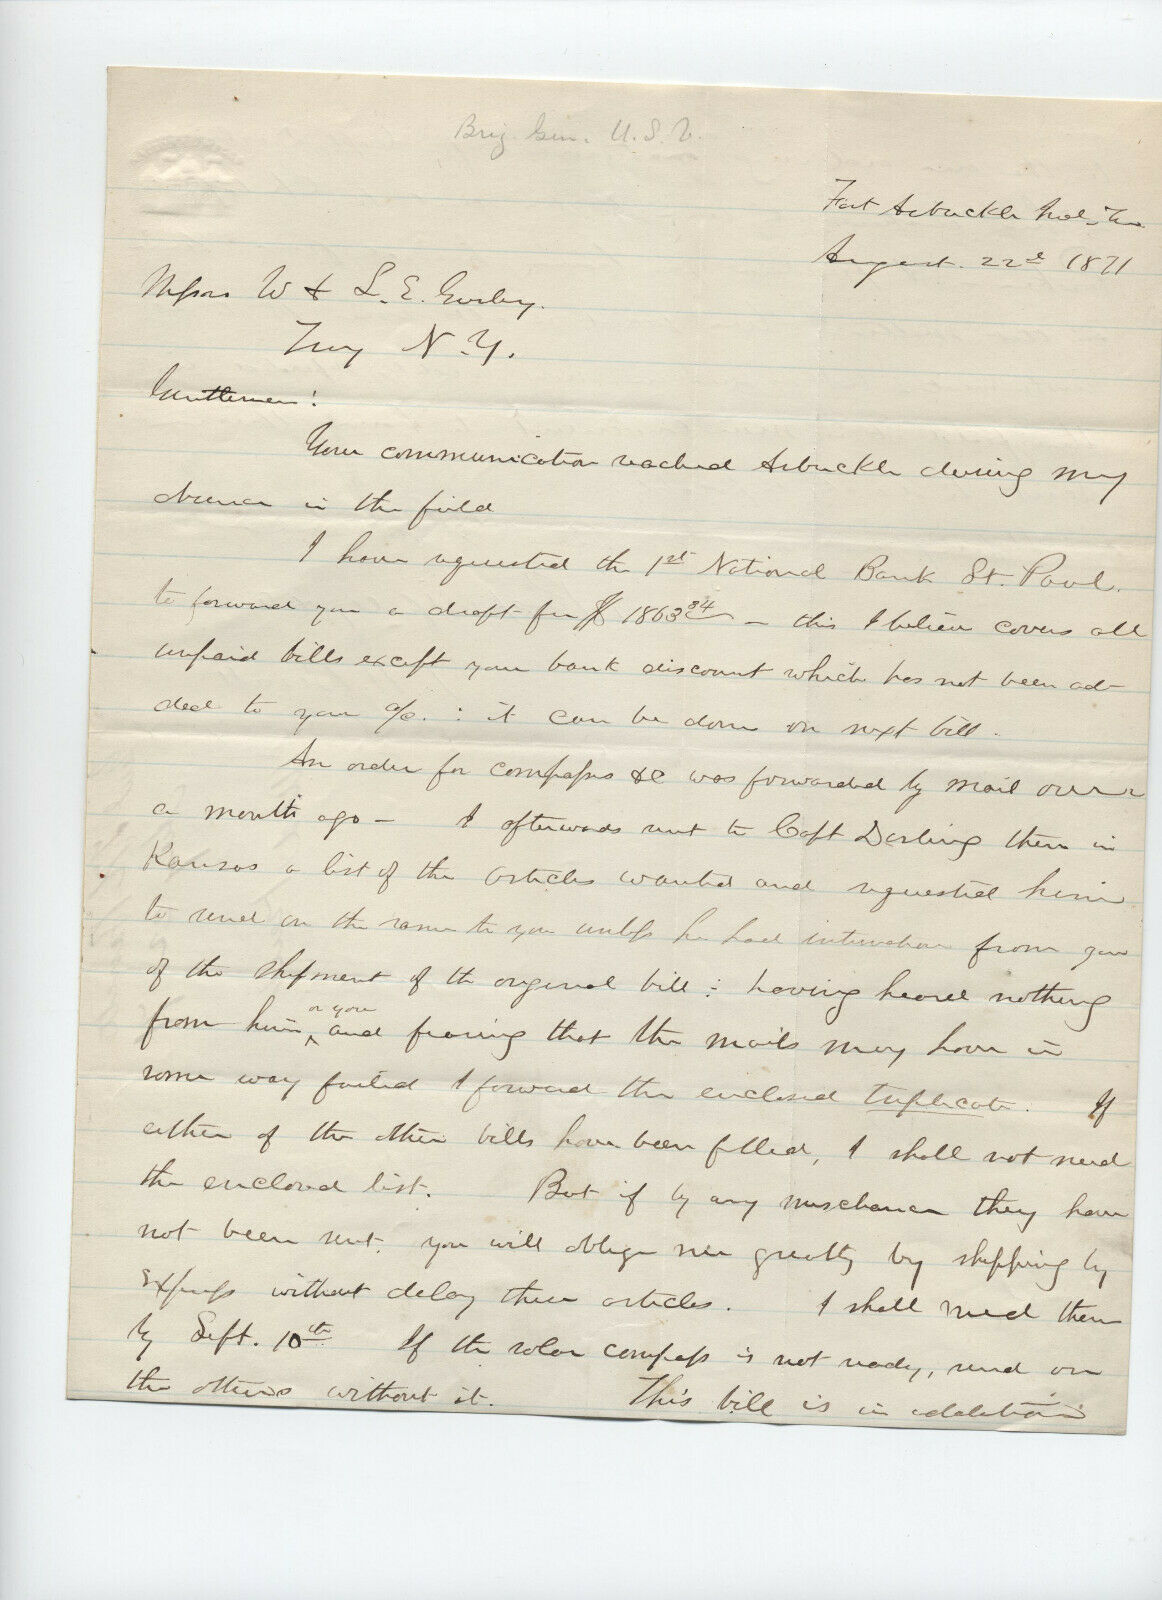 Brig. Gen. U.S.V.
Fort Arbuckle Ind. Ter
August. 22d 1871
Messrs W & L. E. Gurley.
Troy N.Y.
Gentlemen:
Your communication reached Arbuckle during my
absence in the field
I have requested the 1st National Bank St. Paul.
to forward you a draft for $1863 34 — this I believe covers all
unpaid bills except your bank discount which has not been ad-
ded to your a/c. : it can be done on next bill.
An order for compasses &c was forwarded by mail over
a month ago — I afterwards sent to Capt Darling then in
Kansas a list of the articles wanted and requested him
to send on the same to you unless he had information from you
of the shipment of the original bill : having heard nothing
from him or you and fearing that the mails may have in
some way failed I forward the enclosed triplicate. If
either of the other bills have been filled, I shall not need
the enclosed list. But if by any mischance they have
not been sent, you will oblige me greatly by shipping by
Express without delay these articles. I shall need them
by Sept. 10th If the solar compass is not ready, send on
the others without it. This bill is in addition